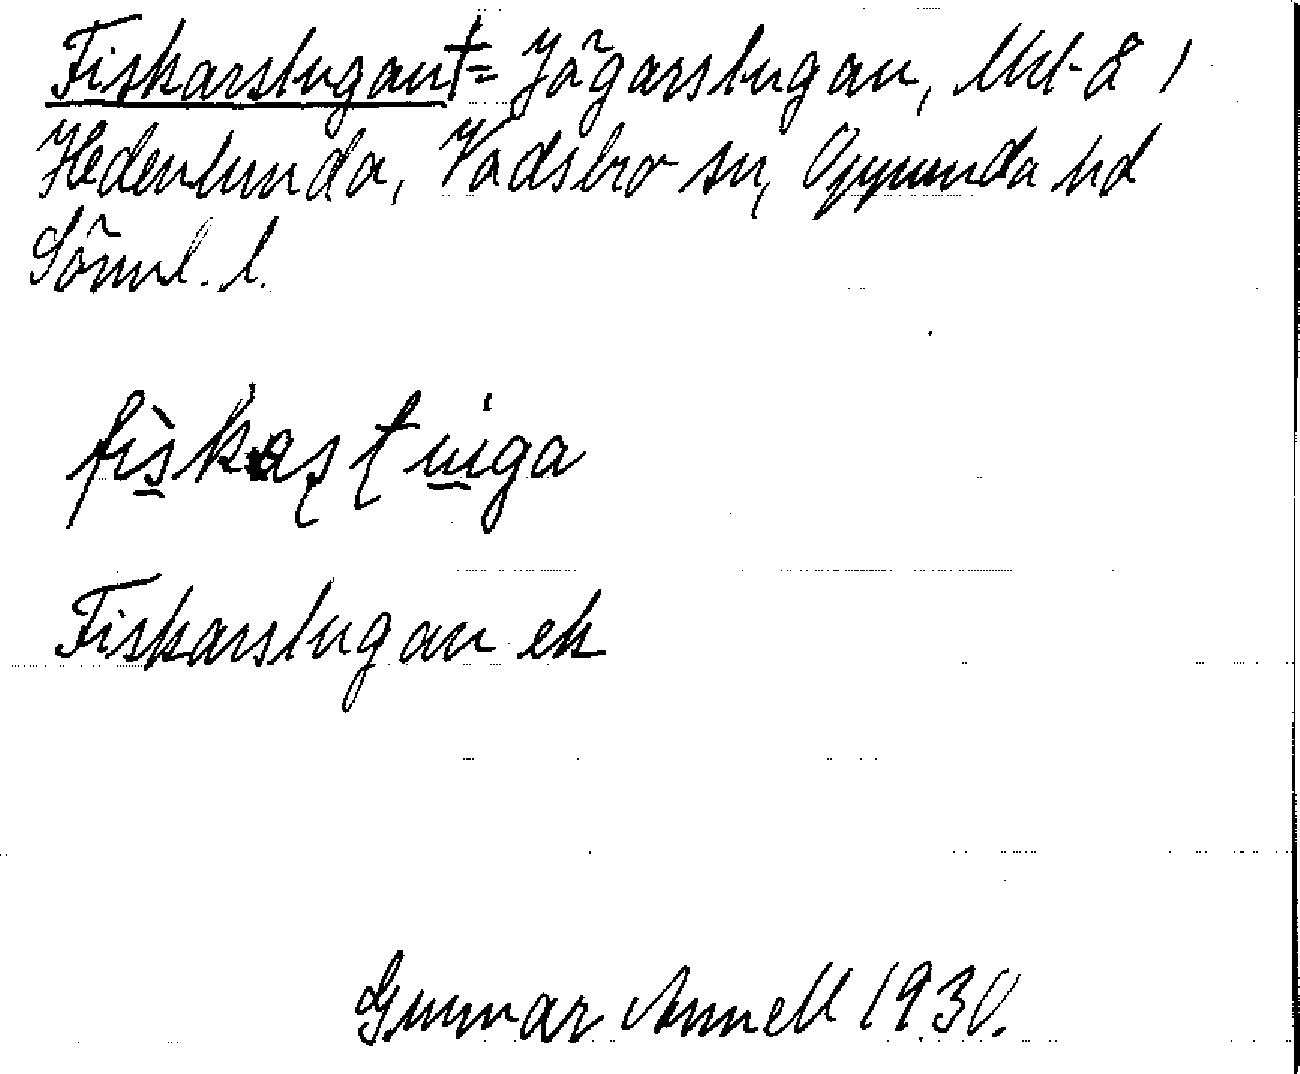 Fiskarstugan†= Jägarstugan, Utt-2 1
Hedenlunda, Vadsbro sn, Oppunda hd
Söml. l.
Fiskarstugan ek
Gunnar Annell 1930.